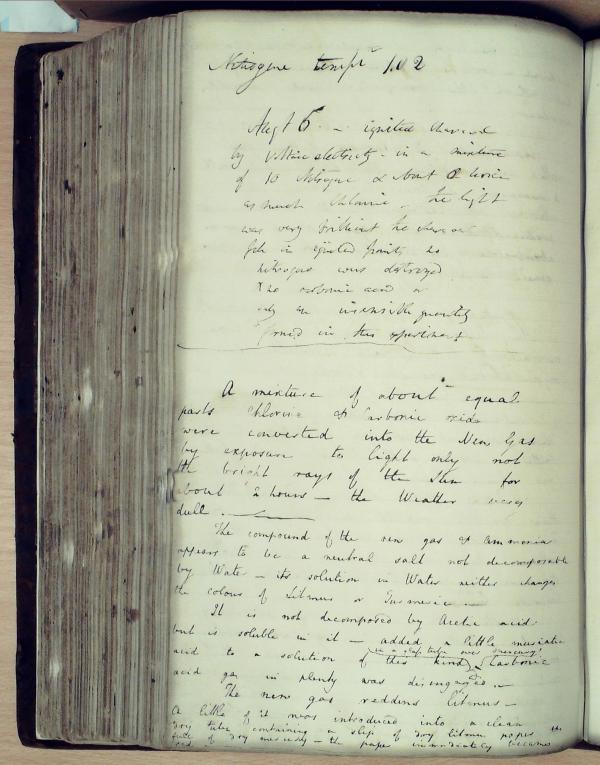 Nitrogene tempr 102
Augt 6 – ignited charcoal
by Voltaic electricity – in a mixture
of 10 Nitrogene & about twice
as much Chlorine. The light
was very brilliant the charcoal
in ignited points no
nitrogene was destroyed
& no carbonic acid or
only an insensible quantity
formed in this experiment
A mixture of about equal
parts Chlorine & Carbonic oxide
were converted into the New Gas
by exposure to light only not
the bright rays of the Sun for
about 2 hours – the Weather very
dull.
The compound of the new gas & ammonia
appears to be a neutral salt not decomposable
by Water – its solution in Water neither changes
the colour of Litmus or Turmeric –
It is not decomposed by Acetic acid
but is soluble in it – added a little muriatic
in a tube over mercury
acid to a solution of this kind, Carbonic
acid gas in plenty was disengaged –
The new gas reddens litmus –
A little of it was introduced into a clean
dry tube containing a slip of dry litmus paper the
of dry mercury – the paper immediately became
red